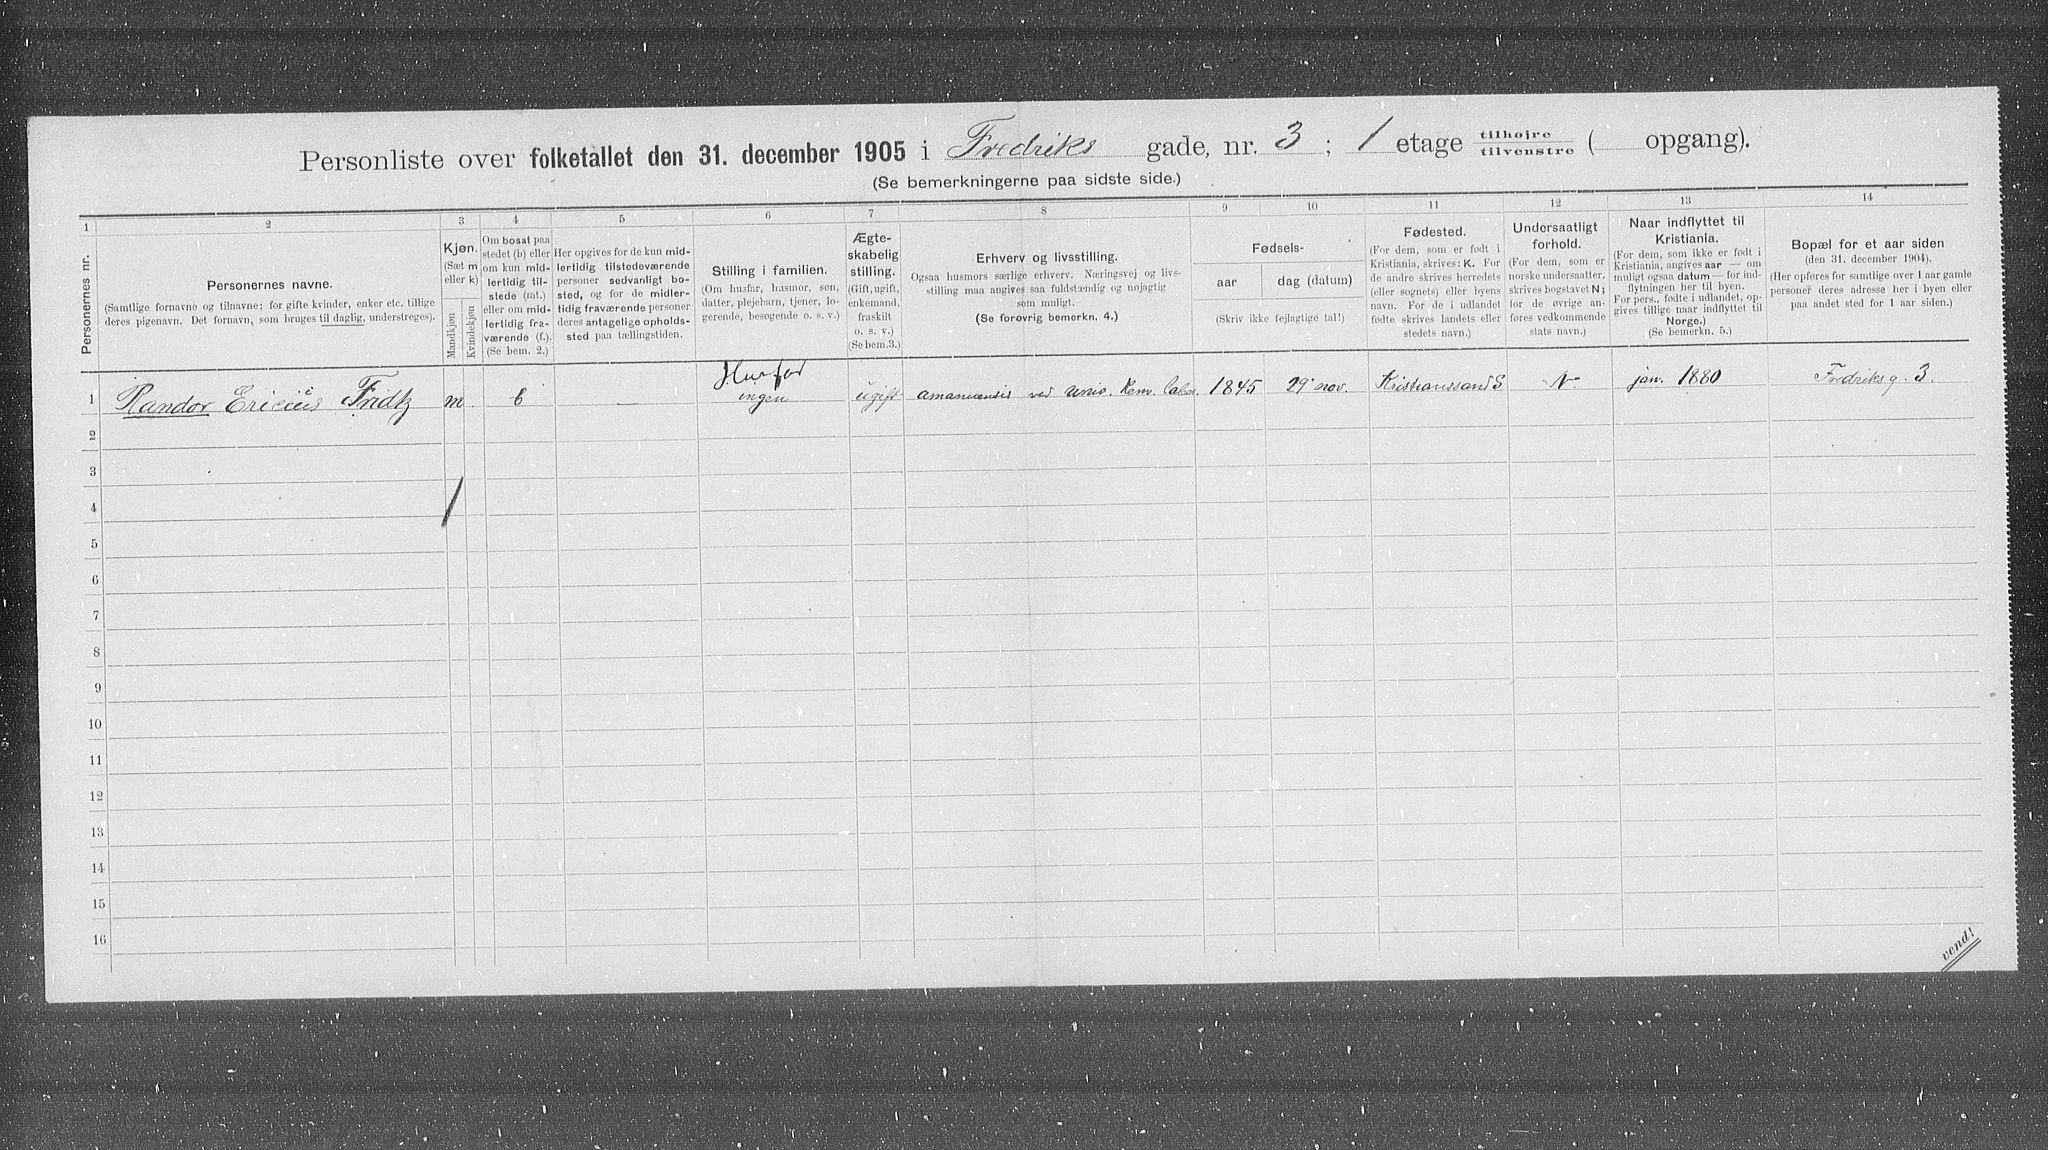 Personliste over folketallet den 31. december 1905 i Fredriks gade, nr. 3 ; 1 etage tilhøjre tilvenstre ( opgang).
(Se bemerkningerne paa sidste side.)
1 2 3 4 5 6 7 8 9 10 11 12 13 14
Personernes nr.
Personernes navne.
(Samtlige fornavne og tilnavne; for gifte kvinder, enker etc. tillige
deres pigenavn. Det fornavn, som bruges til daglig, understreges).
Kjøn.
(Sæt m
eller k)
Mandkjøn
Kvindekjøn
Om bosat paa
stedet (b) eller
om kun mid-
lertidig til-
stede (mt.)
eller om mid-
lertidig fra-
værende (f.).
(Se bem. 2.)
Her opgives for de kun mid-
lertidig tilstedeværende
personer sedvanligt bo-
sted, og for de midler-
tidig fraværende personer
deres antagelige opholds-
sted paa tællingstiden.
Stilling i familien.
(Om husfar, husmor, søn,
datter, plejebarn, tjener, lo-
gerende, besøgende o. s. v.)
Ægte-
skabelig
stilling.
(Gift, ugift,
enkemand,
fraskilt
o. s. v.)
(Se bem. 3.)
Erhverv og livsstilling.
Ogsaa husmors særlige erhverv. Næringsvej og livs-
stilling maa angives saa fuldstændig og nøjagtig
som muligt.
(Se forøvrig bemerkn. 4.)
Fødsels-
aar
dag (datum)
(Skriv ikke fejlagtige tal!)
Fødested.
(For dem, som er født i
Kristiania, skrives: K. For
de andre skrives herredets
(eller sognets) eller byens
navn. For de i udlandet
fødte skrives landets eller
stedets navn.)
Undersaatligt
forhold.
(For dem, som er
norske undersaatter,
skrives bogstavet N;
for de øvrige an-
føres vedkommende
stats navn.)
Naar indflyttet til
Kristiania.
(For dem, som ikke er født i
Kristiania, angives aar — om
muligt ogsaa datum — for ind-
flytningen her til byen.
For pers., fødte i udlandet, op-
gives tillige naar indflyttet til
Norge.)
(Se bemerkn. 5.)
Bopæl for et aar siden
(den 31. december 1904).
(Her opføres for samtlige over 1 aar gamle
personer deres adresse her i byen eller
paa andet sted for 1 aar siden.)
Husfar
1 Randor Ericius Fridtz m b — ingen ugift amanuensis ved Univ. kem. labor. 1845 29' nov. Kristianssand S N jan. 1880 Fredriks g. 3.
2
3
/
4
5
6
7
8
9
10
11
12
13
14
15
16
vend!